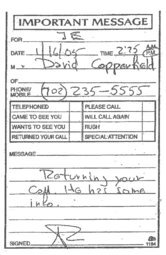 IMPORTANT MESSAGE
FOR JE
DATE 1/16/05 TIME 2:75 A.M. P.M.
M David Copperfield
OF
PHONE/
MOBILE (702) 235-5555
TELEPHONED PLEASE CALL
CAME TO SEE YOU WILL CALL AGAIN
WANTS TO SEE YOU RUSH
RETURNED YOUR CALL SPECIAL ATTENTION
MESSAGE
Returning your
Call. He has some
info.
SIGNED
1184